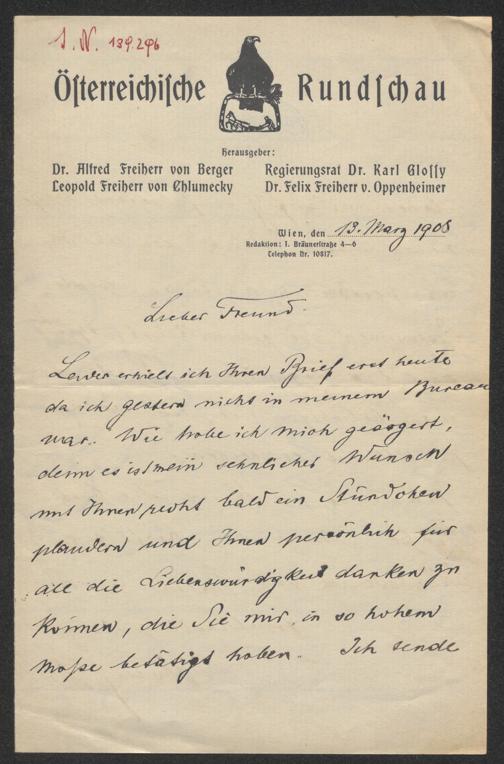 J. N. 139.296
Österreichische Rundschau
Herausgeber:
Dr. Alfred Freiherr von Berger
Leopold Freiherr von Chlumecky
Regierungsrat Dr. Karl Glossy
Dr. Felix Freiherr v. Oppenheimer
Wien, den 13. März 1908
Redaktion: I. Bräunerstraße 4—6
Telephon Nr. 10817.
Lieber Freund.
Leider erhielt ich Ihren Brief erst heute
da ich gestern nicht in meinem Bureau
war. Wie habe ich mich geärgert,
denn es ist mein sehnlicher Wunsch
mit Ihnen recht bald ein Stündchen
plaudern und Ihnen persönlich für
all die Liebenswürdigkeit danken zu
können, die Sie mir in so hohem
Maße betätigt haben. Ich sende